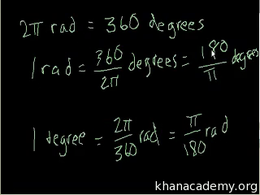 2π rad = 360 degrees
1 rad = 360/2π degrees = 180/π degrees
1 degree = 2π/360 rad = π/180 rad
khanacademy.org